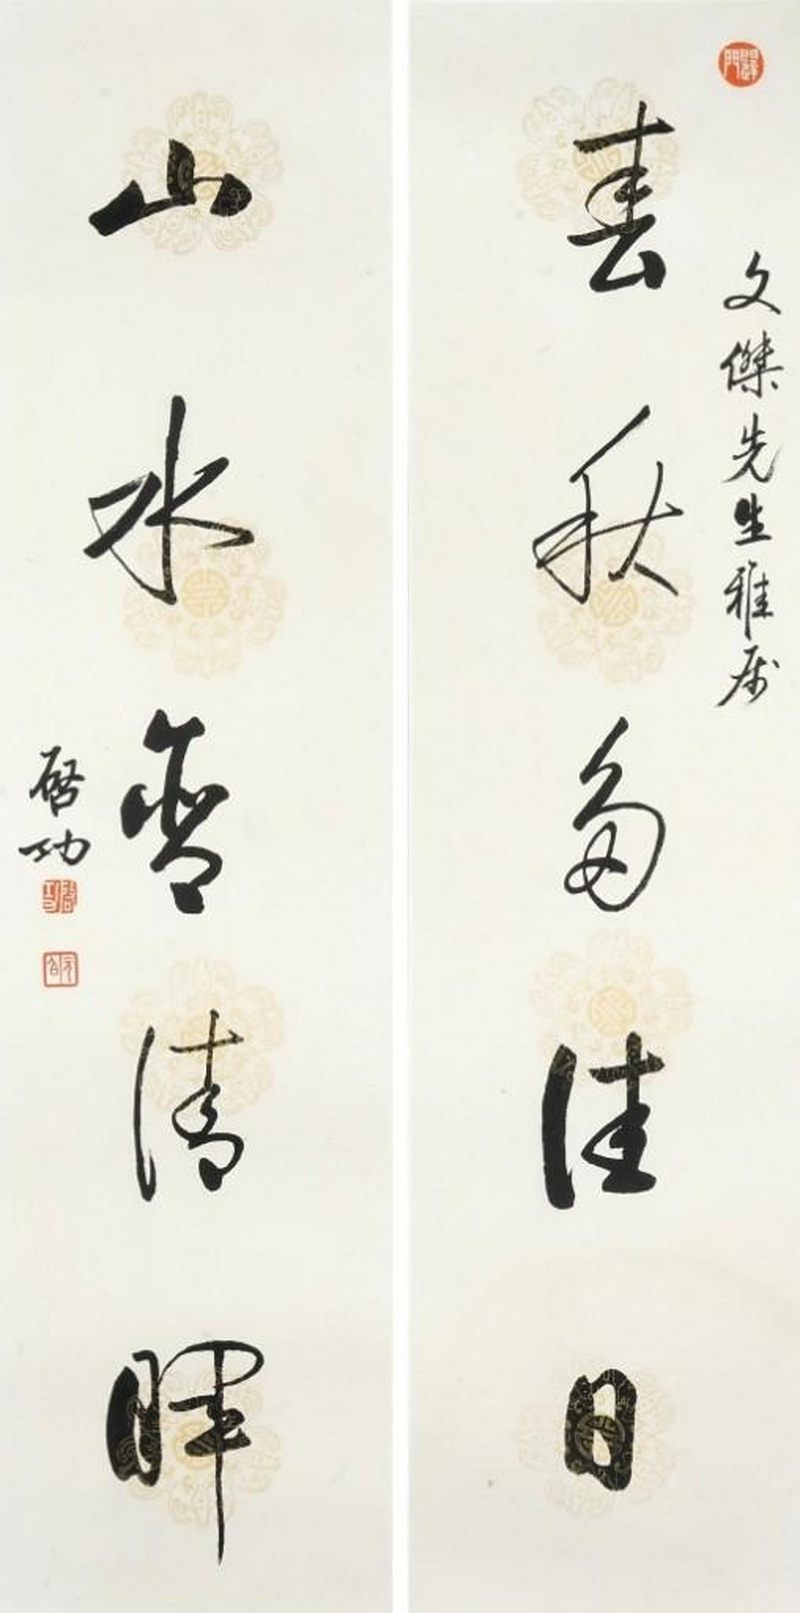 春秋多佳日
文傑先生雅属
山水含清暉
啓功